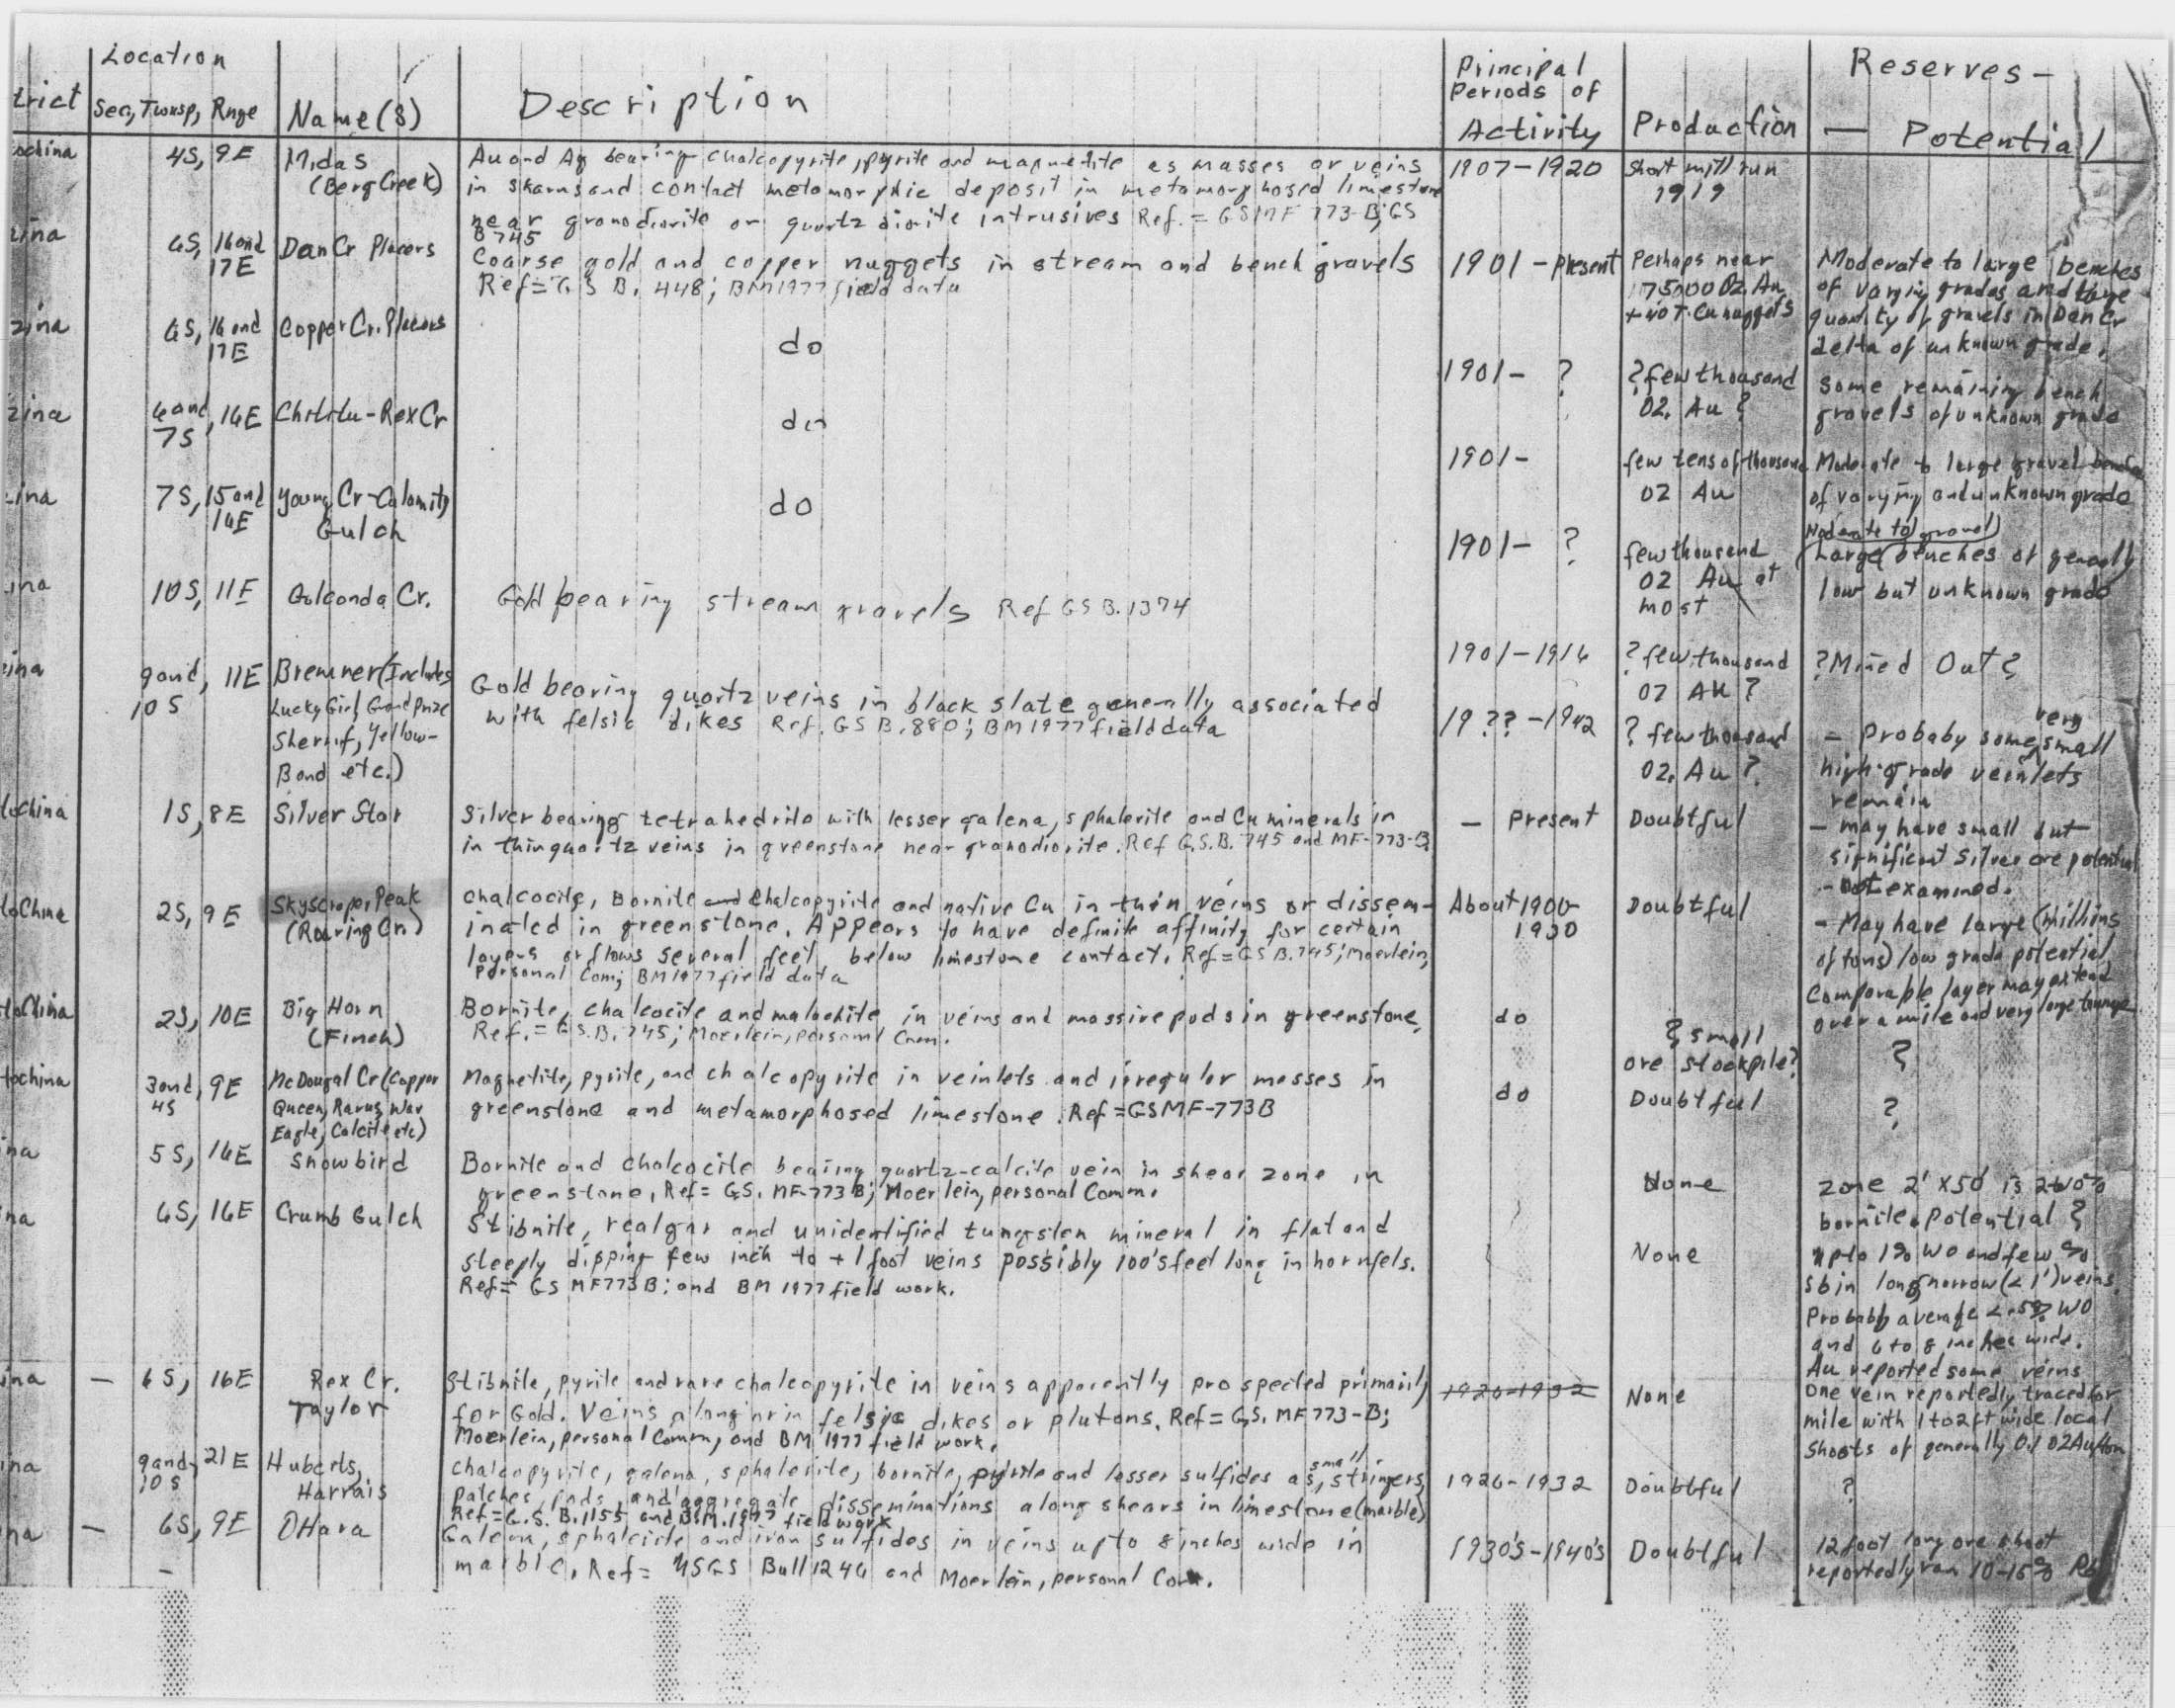 Location
trict Sec, Twnsp, Rnge Name(s) Description Principal Periods of Activity Production Reserves – — Potential
ochina 4S, 9E Midas (Berg Creek)
Au and Ag bearing chalcopyrite, pyrite and magnetite as masses or veins
in skarns and contact metamorphic deposit in metamorphosed limestone
near granodiorite or quartz diorite intrusives Ref. = GSMF 773-B; GS
B745
1907–1920 short mill run
1919
zina 6S, 16 and 17E Dan Cr Placers
Coarse gold and copper nuggets in stream and bench gravels
Ref = G S B. 448; BM 1977 field data
1901 – present
Perhaps near
175000 Oz. Au
+ 40 T. Cu nuggets
Moderate to large benches
of varying grades and large
quantity of gravels in Dan Cr
delta of unknown grade.
zina 6S, 16 and 17E Copper Cr. Placers
do
1901 – ?
? few thousand
oz. Au ?
some remaining bench
gravels of unknown grade
zina 6 and 7S, 16E Chititu – Rex Cr
do
1901 –
few tens of thousand
oz Au
Moderate to large gravel benches
of varying and unknown grade
zina 7S, 15 and 16E Young Cr – Calamity
Gulch
do
1901 – ?
few thousand
oz Au at
most
Moderate to gravel
Large benches of generally
low but unknown grade
ina 10S, 11E Golconda Cr.
Gold bearing stream gravels Ref GS B. 1374
1901–1916
? few thousand
oz Au ?
? Mined Out ?
zina 9 and 10S, 11E Bremner (Includes
Lucky Girl, Grand Prize
Sherrif, Yellow-
Band etc.)
Gold bearing quartz veins in black slate generally associated
with felsic dikes Ref. GS B. 880; BM 1977 field data
19??–1942
? few thousand
oz. Au ?
– Probaby some very small
high-grade veinlets
remain
tochina 1S, 8E Silver Star
Silver bearing tetrahedrite with lesser galena, sphalerite and Cu minerals in
in thin quartz veins in greenstone near granodiorite. Ref G.S.B. 745 and MF-773-B.
– Present Doubtful
– may have small but
significant Silver ore potential
– not examined.
toChina 2S, 9E Skyscraper Peak
(Roaring Cr.)
chalcocite, Bornite and Chalcopyrite and native Cu in thin veins or dissem-
inated in greenstone. Appears to have definite affinity for certain
layers or flows several feet below limestone contact. Ref = GS B. 745; Moerlein,
personal Com; BM 1977 field data
About 1900–
1930
Doubtful
– May have large (millions
of tons) low grade potential
Comparable layer may extend
over a mile and very large tonnage
toChina 2S, 10E Big Horn
(Finch)
Bornite, chalcocite and malachite in veins and massive pods in greenstone,
Ref. = G.S.B. 745; Moerlein, personal Comm.
do
? small
ore stockpile?
?
tochina 3 and 4S, 9E McDougal Cr (Copper
Queen, Rarus, War
Eagle, Calcite etc)
Magnetite, pyrite, and chalcopyrite in veinlets and irregular masses in
greenstone and metamorphosed limestone. Ref = GSMF-773B
do Doubtful ?
ina 5S, 16E Snowbird
Bornite and chalcocite bearing quartz-calcite vein in shear zone in
greenstone, Ref = G.S. MF-773B; Moerlein, personal Comm.
None
zone 2' x 50' is
bornite. Potential ?
ina 6S, 16E Crumb Gulch
Stibnite, realgar and unidentified tungsten mineral in flat and
steeply dipping few inch to + 1 foot veins possibly 100's feet long in hornfels.
Ref = GS MF773B; and BM 1977 field work.
None
upto 1% WO and few %
Sb in long narrow (<1') veins.
Probably average <.5% WO
and 6 to 8 inches wide.
Au reported some veins
ina – 6S, 16E Rex Cr.
Taylor
Stibnite, pyrite and rare chalcopyrite in veins apparently prospected primarily
for Gold. Veins along or in felsic dikes or plutons. Ref = G.S. MF773-B;
Moerlein, personal Comm, and BM 1977 field work.
1926–1932
None
One vein reportedly traced for
mile with 1 to 2 ft wide local
shoots of generally 0.1 oz Au/ton
ina 9 and 10S, 21E Huberts,
Harrais
chalcopyrite, galena, sphalerite, bornite, pyrite and lesser sulfides as small stringers,
patches, pods and aggregate disseminations along shears in limestone (marble)
Ref = G.S. B.1155 and B.M. 1977 field work
1926–1932 Doubtful ?
ina – 6S, 9E O'Hara
Galena, sphalerite and iron sulfides in veins upto 8 inches wide in
marble, Ref = USGS Bull 1246 and Moerlein, personal Com.
1930's–1940's Doubtful
12 foot long ore shoot
reportedly ran 10–15% Pb